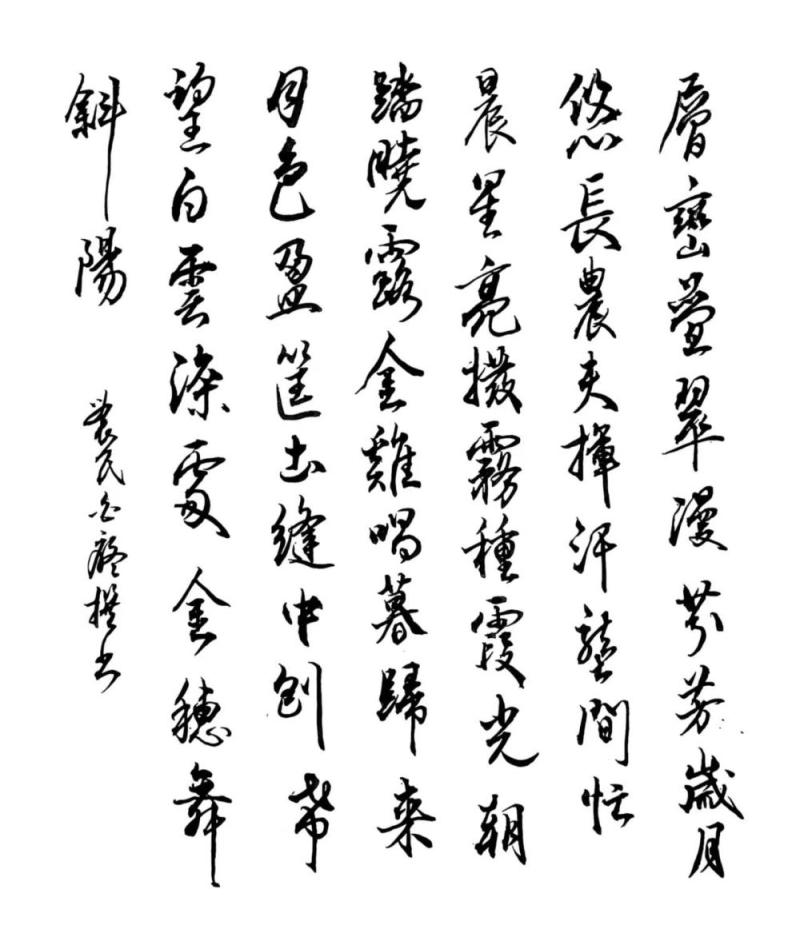 層巒疊翠漫芬芳歲月
悠長農夫揮汗壟間忙
晨星亮撥霧種霞光朝
踏曉露金雞唱暮歸來
月色盈筐土縫中刨希
望白雲深處金穗舞
斜陽
農民 撰书